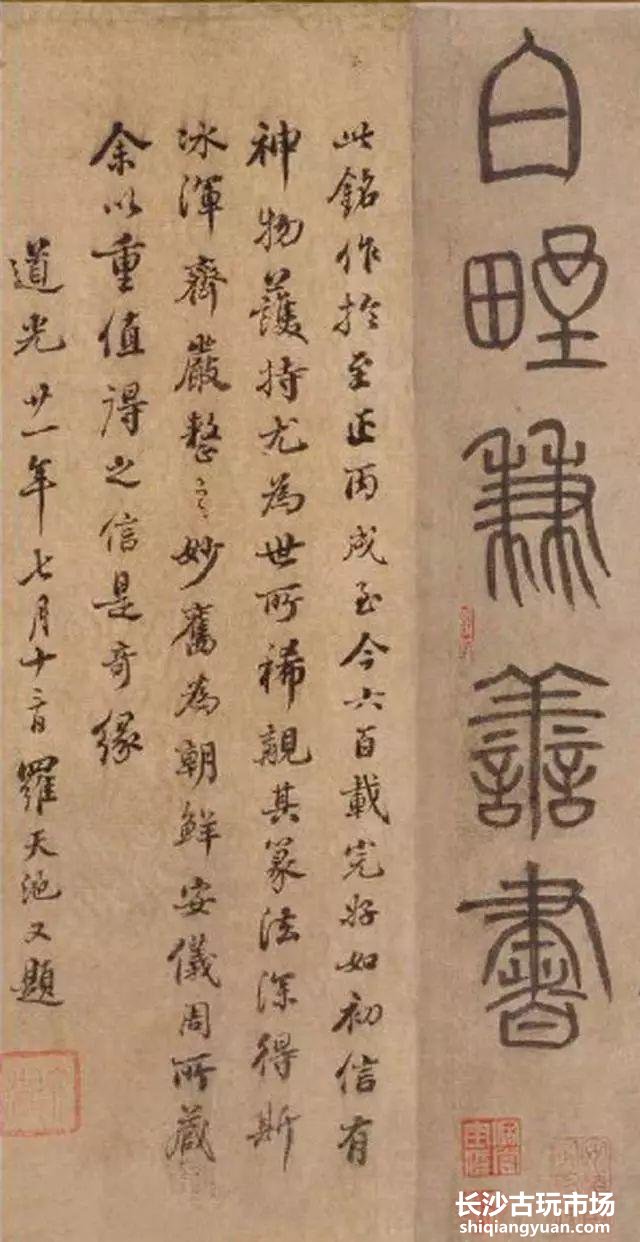 白野兼善書
此銘作於至正丙戌至今六百載完好如初信有
神物護持尤為世所稀覯其篆法深得斯
冰渾齊嚴整之妙舊為朝鮮安儀周所藏
余以重值得之信是奇緣
道光廿一年七月十二日羅天池又題
长沙古玩市场
shiqiangyuan.com